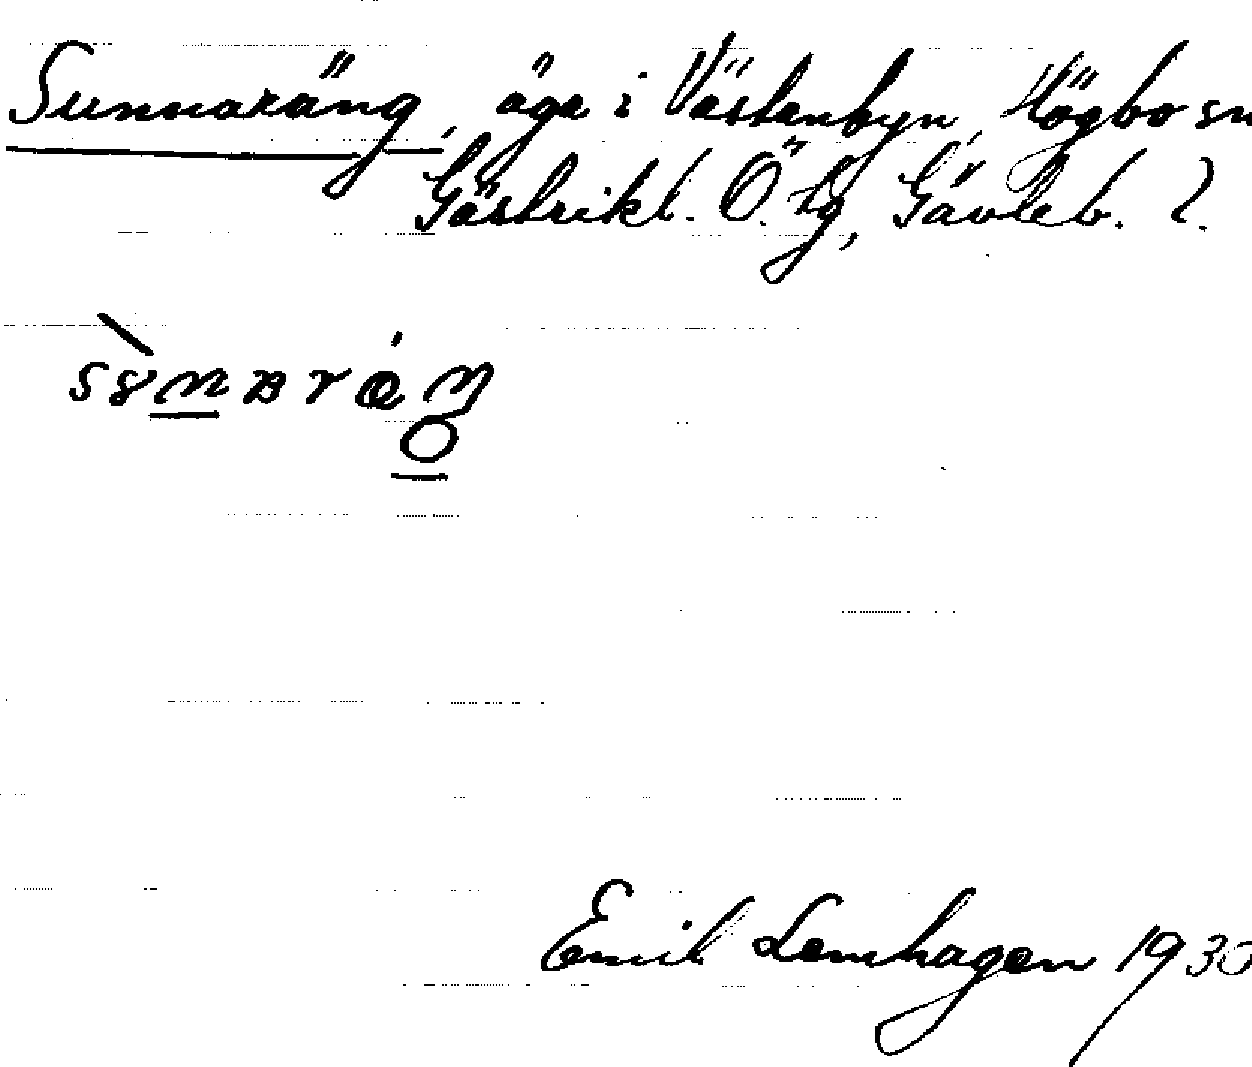 Sunnaräng, äga i Västanbyn, Högbo sn
Gästrikl. Ö. tg, Gävleb. l.
Emil Lemhagen 1930